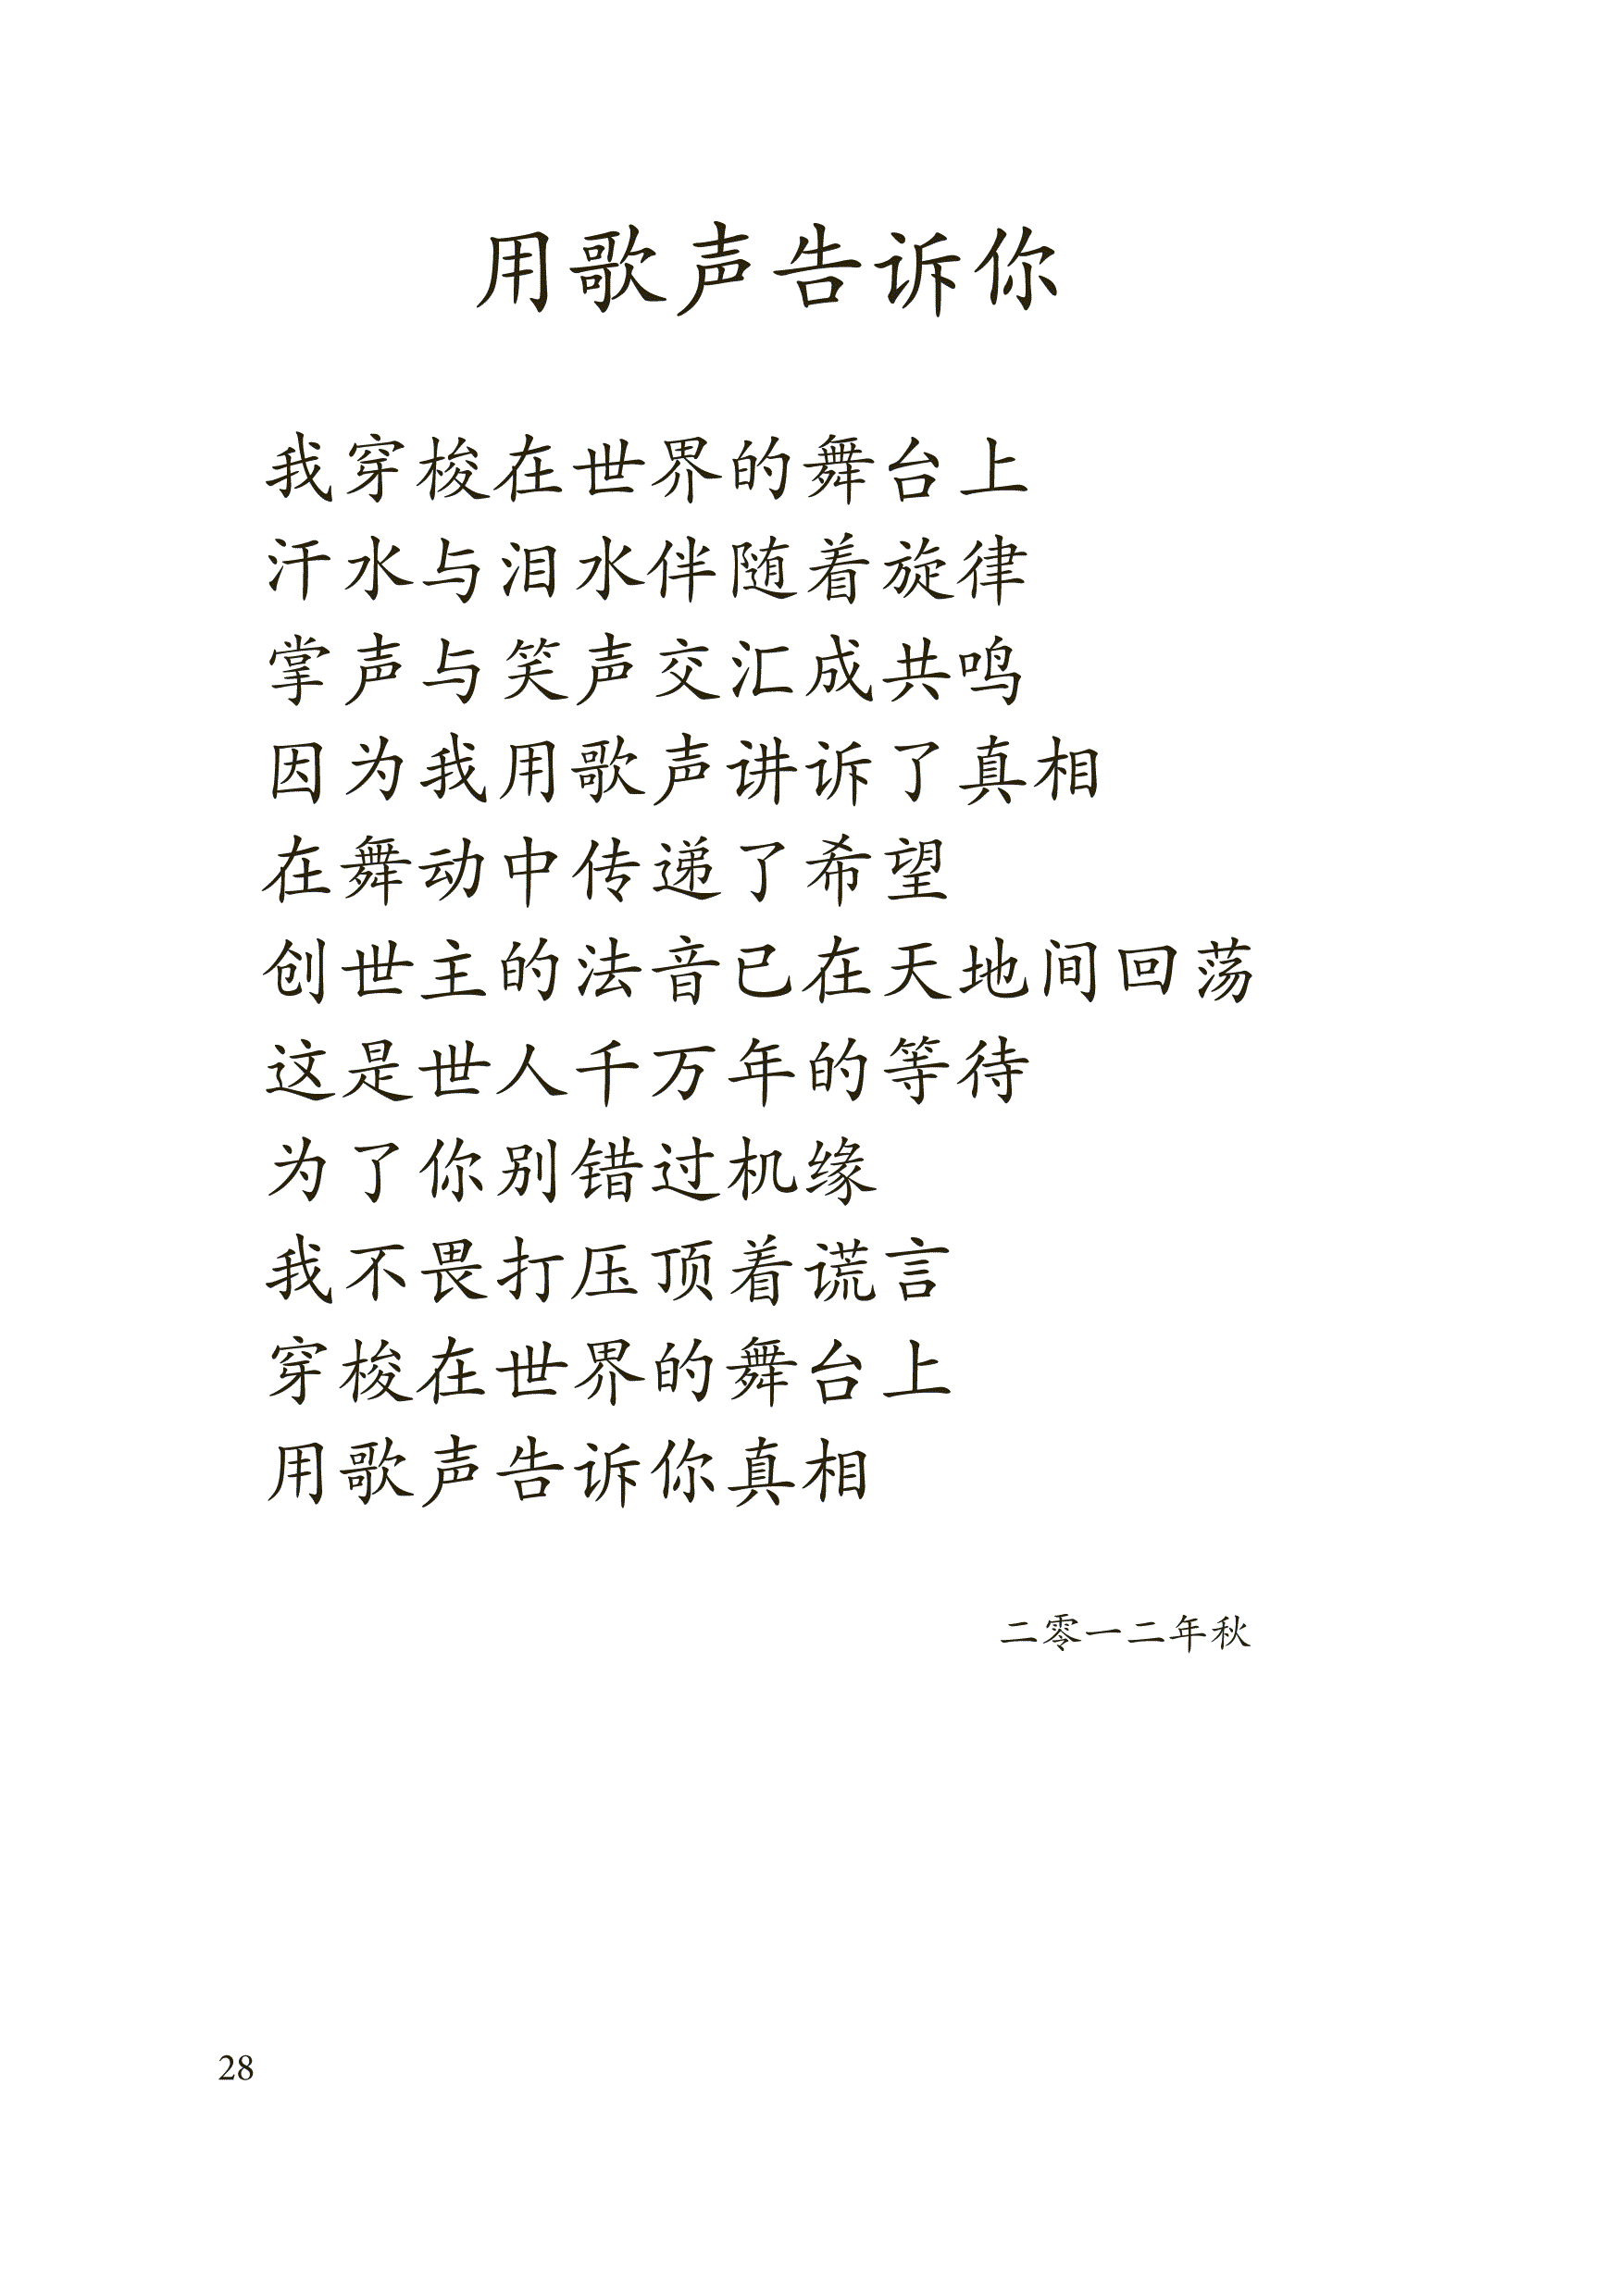 用歌声告诉你
我穿梭在世界的舞台上
汗水与泪水伴随着旋律
掌声与笑声交汇成共鸣
因为我用歌声讲诉了真相
在舞动中传递了希望
创世主的法音已在天地间回荡
这是世人千万年的等待
为了你别错过机缘
我不畏打压顶着谎言
穿梭在世界的舞台上
用歌声告诉你真相
二零一二年秋
28